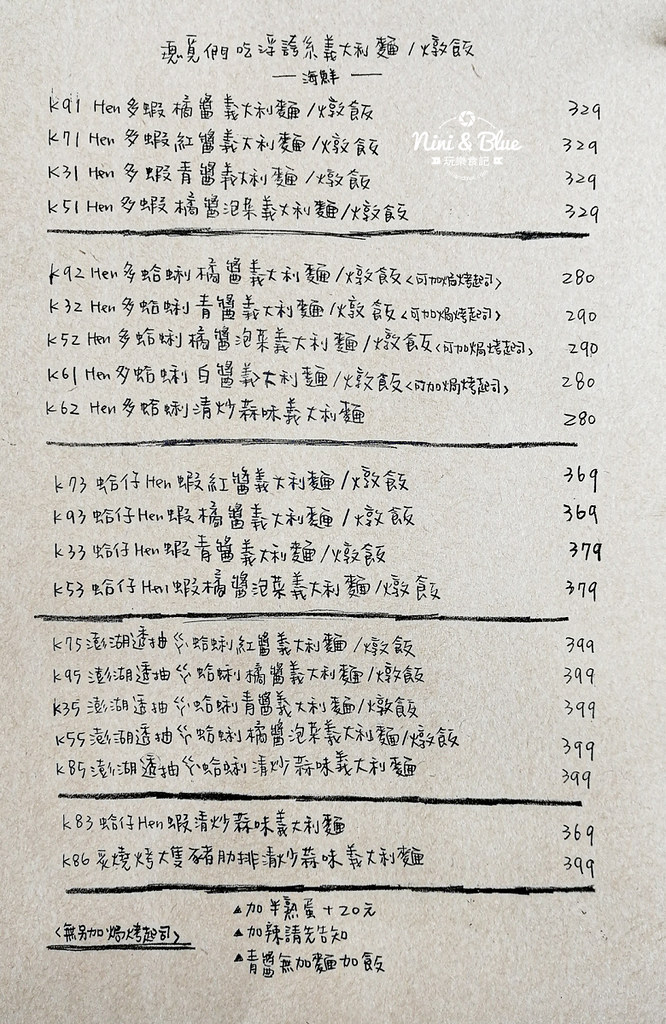 覓們吃浮誇系義大利麵/燉飯
— 海鮮 —
K91 Hen多蝦橘醬義大利麵/燉飯 329
K71 Hen多蝦紅醬義大利麵/燉飯 329
Nini & Blue
玩樂食記
K31 Hen多蝦青醬義大利麵/燉飯 329
K51 Hen多蝦橘醬泡菜義大利麵/燉飯 329
K92 Hen多蛤蜊橘醬義大利麵/燉飯<可加焗烤起司> 280
K32 Hen多蛤蜊青醬義大利麵/燉飯<可加焗烤起司> 290
K52 Hen多蛤蜊橘醬泡菜義大利麵/燉飯<可加焗烤起司> 290
K61 Hen多蛤蜊白醬義大利麵/燉飯<可加焗烤起司> 280
K62 Hen多蛤蜊清炒蒜味義大利麵 280
K73 蛤仔Hen蝦紅醬義大利麵/燉飯 369
K93 蛤仔Hen蝦橘醬義大利麵/燉飯 369
K33 蛤仔Hen蝦青醬義大利麵/燉飯 379
K53 蛤仔Hen蝦橘醬泡菜義大利麵/燉飯 379
K75 澎湖透抽ㄍㄚ蛤蜊紅醬義大利麵/燉飯 399
K95 澎湖透抽ㄍㄚ蛤蜊橘醬義大利麵/燉飯 399
K35 澎湖透抽ㄍㄚ蛤蜊青醬義大利麵/燉飯 399
K55 澎湖透抽ㄍㄚ蛤蜊橘醬泡菜義大利麵/燉飯 399
K85 澎湖透抽ㄍㄚ蛤蜊清炒蒜味義大利麵 399
K83 蛤仔Hen蝦清炒蒜味義大利麵 369
K86 炙燒烤大隻豬肋排清炒蒜味義大利麵 399
▲加半熟蛋+20元
<無另加焗烤起司> ▲加辣請先告知
▲青醬無加麵加飯